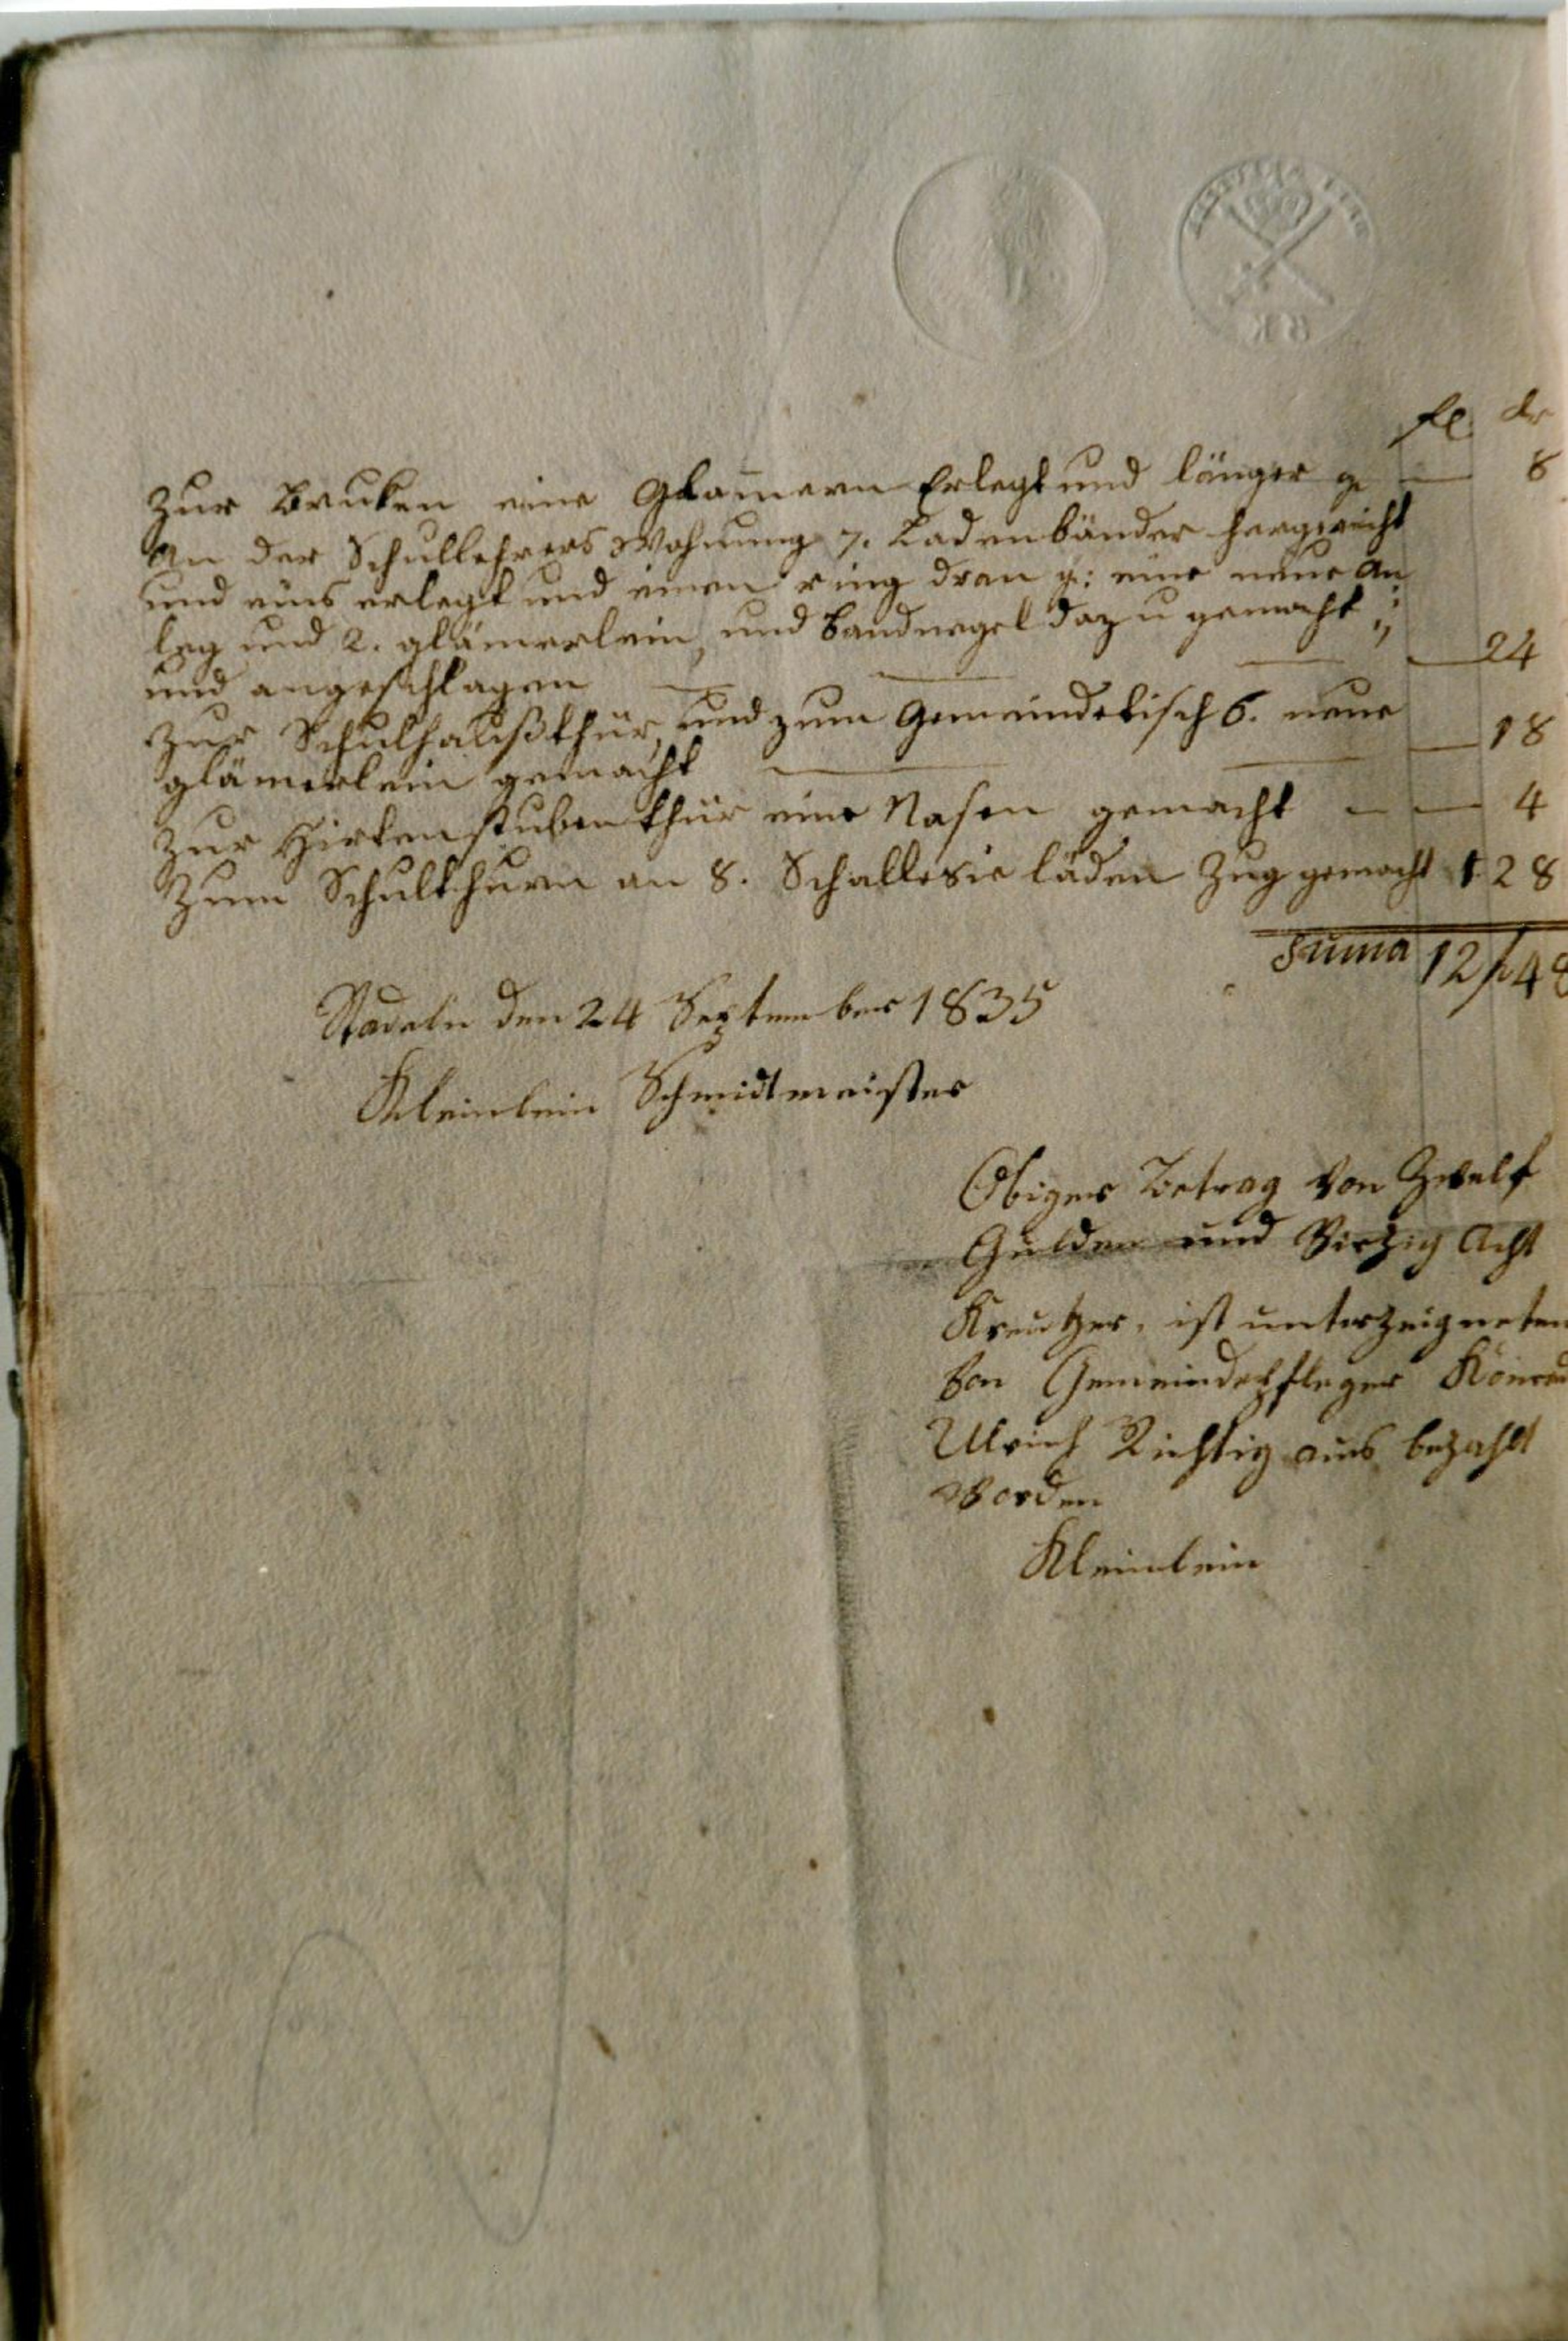 fl. kr
Zur Bruken eine Glamern Erlegt und länger g — 8
An der Schullehrers Wohnung 7. Ladenbänder hergericht
und eins erlegt und einen ring dran g: eine neue An
leg und 2. glämerlein, und Bandnegel dazu gemacht
und angeschlagen — 24
zur Schulhaußthür, und zum Gemeindetisch 6. neue
glämerlein gemacht — 18
zur Hirtenstubenthür eine Nasen gemacht — 4
Zum Schulthurn an 8. Schallesie läden Zug gemacht 1 28
Suma 12 f 48
Stadeln den 24 September 1835
Kleinlein Schmidtmeister
Obiger Betrag von Zwelf
Gulden und Vierzig Acht
Kreutzer, ist unterzeigneten
von Gemeindepfleger Konrad
Ulrich Richtig aus bezahlt
Worden
Kleinlein